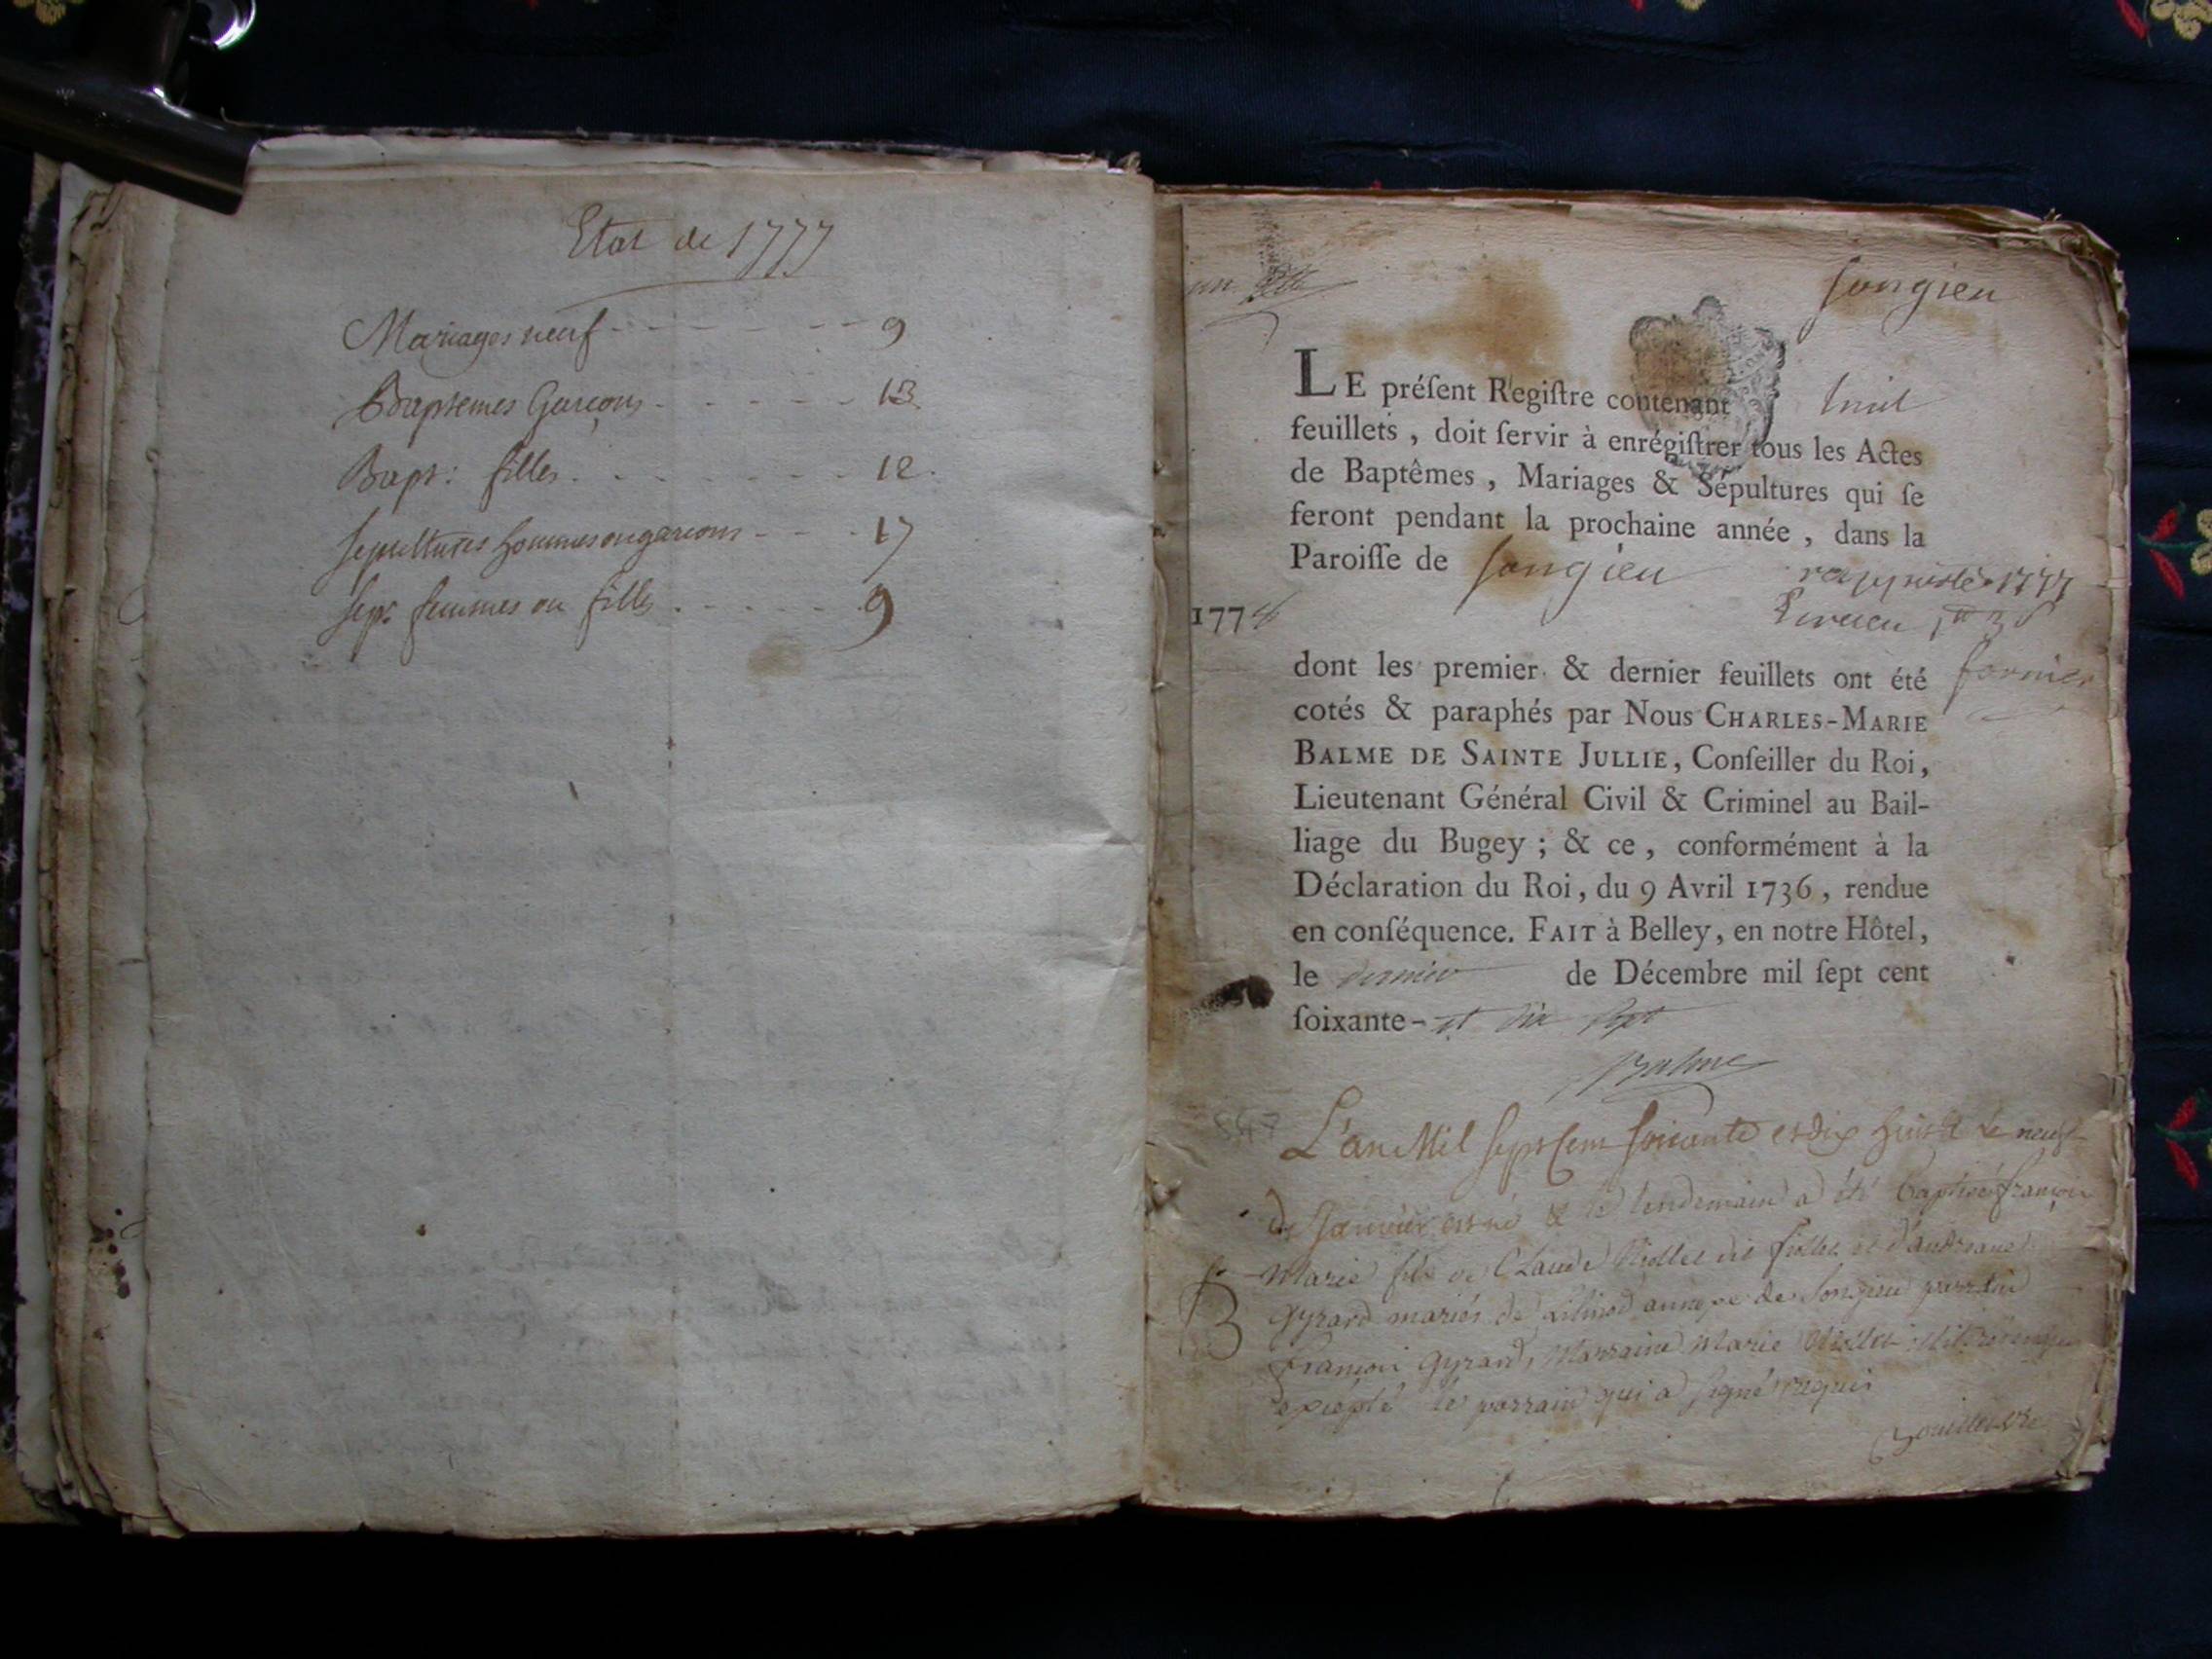 Etat de 1777
Mariages neuf - - - - - - - 9
Baptemes Garçons - - - - - - 13
Bapt: filles. - - - - - - - 12.
sepultures hommes ou garcons - - - 17
sept. femmes ou filles . - - - - 9
Songieu
LE préſent Regiſtre contenant huit
feuillets, doit ſervir à enrégiſtrer tous les Actes
de Baptêmes, Mariages & Sépultures qui ſe
feront pendant la prochaine année, dans la
Paroiſſe de Songieu
1778
dont les premier & dernier feuillets ont été
cotés & paraphés par Nous CHARLES-MARIE
BALME DE SAINTE JULLIE, Conſeiller du Roi,
Lieutenant Général Civil & Criminel au Bail-
liage du Bugey; & ce, conformément à la
Déclaration du Roi, du 9 Avril 1736, rendue
en conſéquence. FAIT à Belley, en notre Hôtel,
le dernier de Décembre mil ſept cent
ſoixante- et dix sept
Balme
L'an Mil Sept Cent soixante et dix huit & le neuf
de Janvier est né & le lendemain a été baptisé françois
Marie fils de Claude dit et
B
Gyrard mariés de annexe de Songieu parrain
françois Gyrard, Marraine Marie
excepté le parrain qui a signé requis